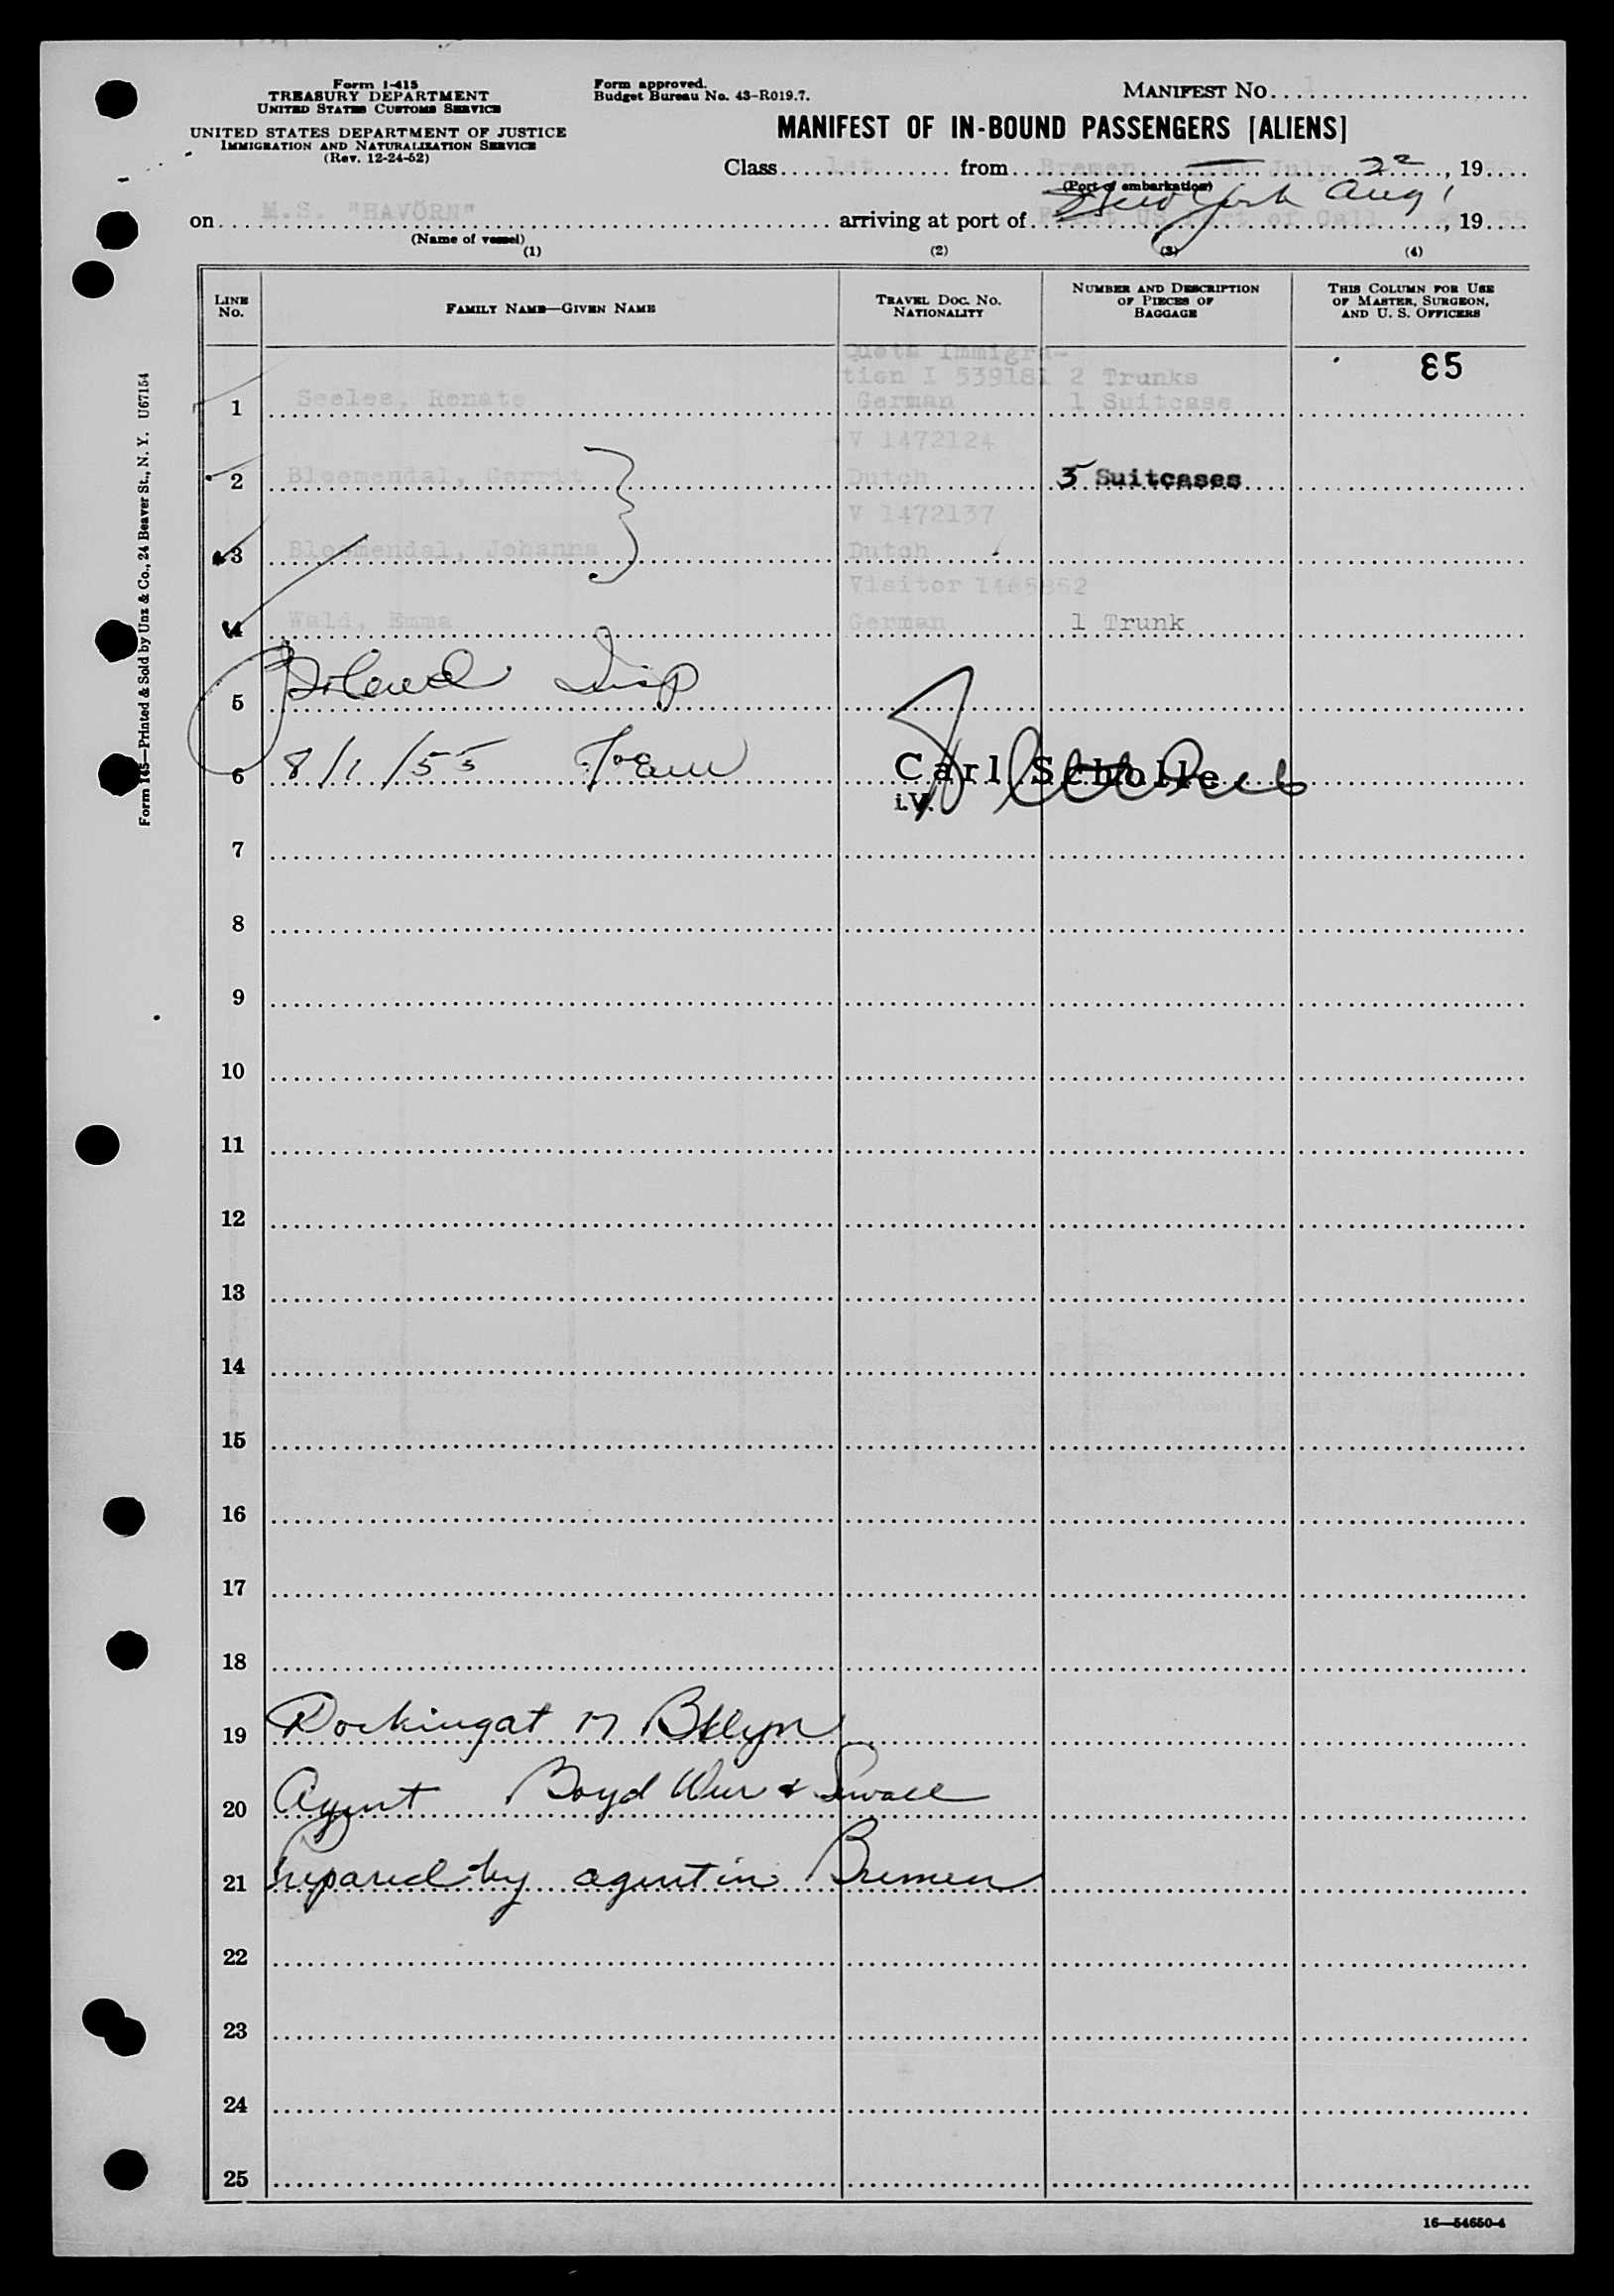 Form I-415
TREASURY DEPARTMENT
UNITED STATES CUSTOMS SERVICE
UNITED STATES DEPARTMENT OF JUSTICE
IMMIGRATION AND NATURALIZATION SERVICE
(Rev. 12-24-52)
Form approved.
Budget Bureau No. 43-R019.7.
MANIFEST NO. 1
MANIFEST OF IN-BOUND PASSENGERS [ALIENS]
Class 1st from Bremen July 22, 1955
(Port of embarkation)
on M.S. "HAVÖRN" arriving at port of New York Aug 1, 1955
First US Port of Call
(Name of vessel)
(1) (2) (3) (4)
LINE NO. FAMILY NAME—GIVEN NAME TRAVEL DOC. NO. NATIONALITY NUMBER AND DESCRIPTION OF PIECES OF BAGGAGE THIS COLUMN FOR USE OF MASTER, SURGEON, AND U. S. OFFICERS
Quota Immigra- 85
tion I 539181 2 Trunks
1 Seeles, Renate German 1 Suitcase
V 1472124
2 Bloemendal, Gerrit Dutch 3 Suitcases
V 1472137
3 Bloemendal, Johanna Dutch
Visitor
4 Wald, Emma German 1 Trunk
5 Insp
6 8/1/55 Carl Scholle
i.V.
7
8
9
10
11
12
13
14
15
16
17
18
19 Docking at 17 Bklyn
20 Agent Boyd Weir & Sewall
21 Prepared by agent in Bremen
22
23
24
25
16—54650-4
Form 145—Printed & Sold by Unz & Co., 24 Beaver St., N. Y. U67154